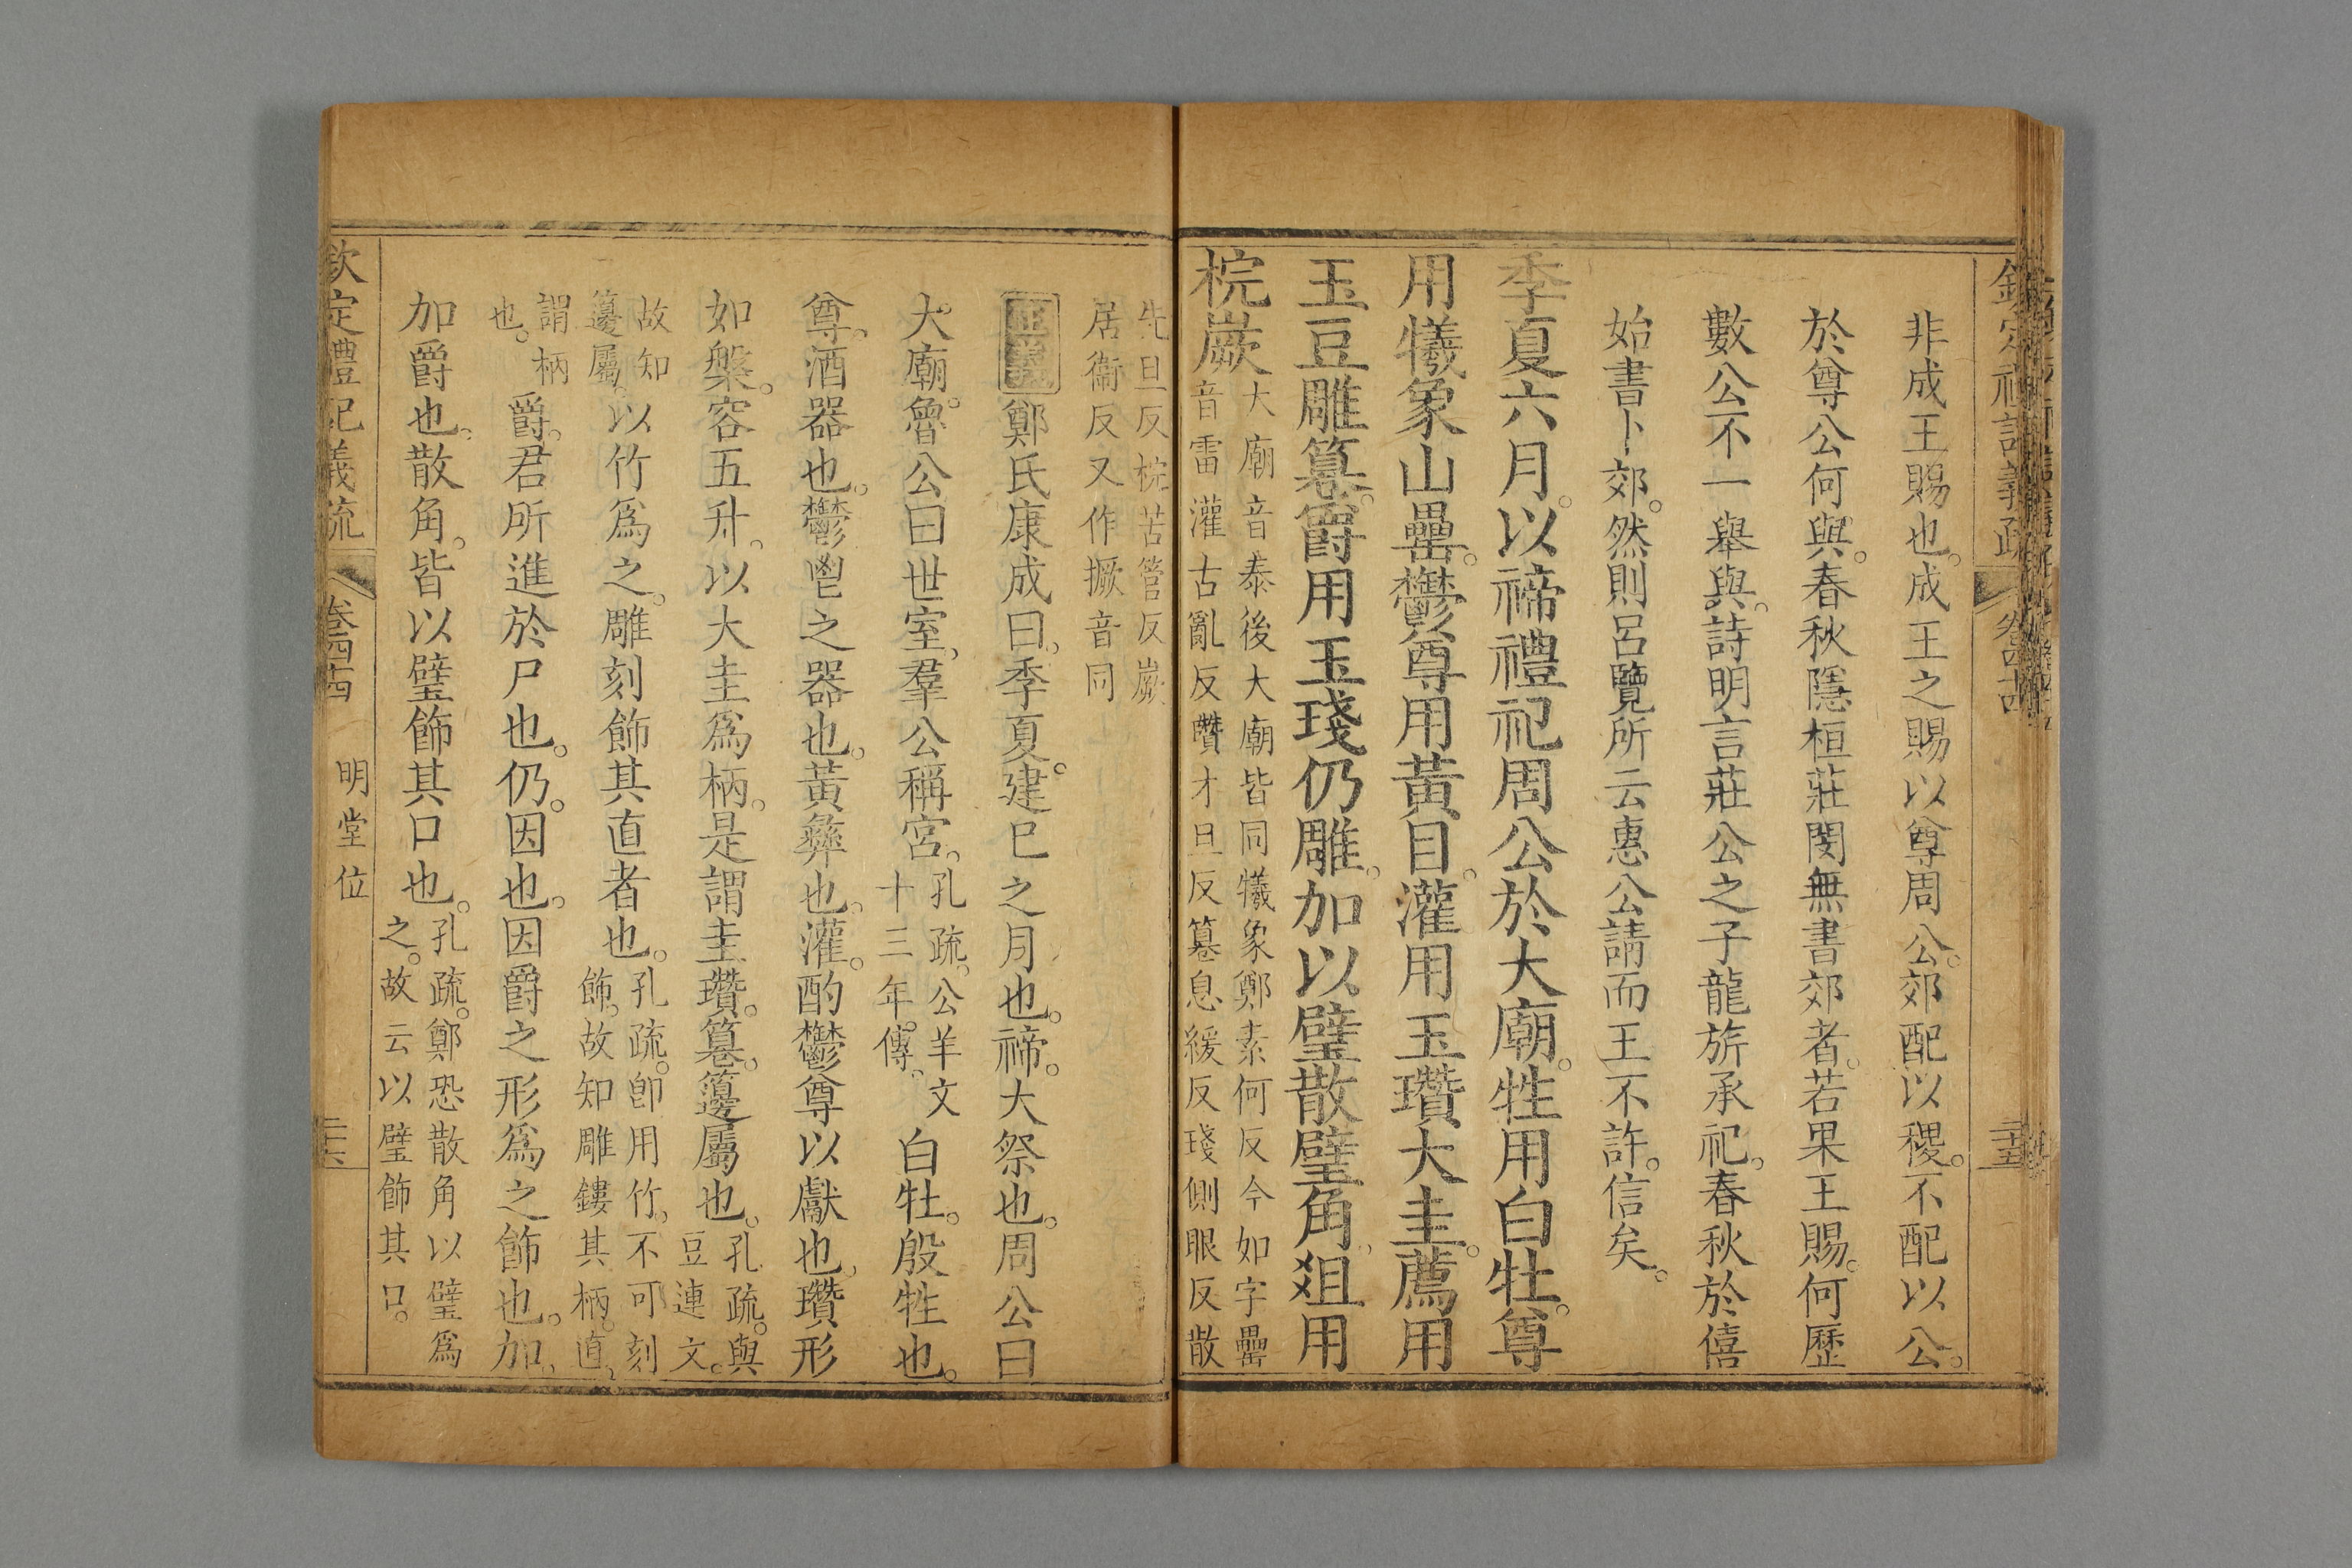 欽定禮記義疏
卷四十四
二十五
非成王賜也。成王之賜以尊周公。郊配以稷。不配以公。
於尊公何與。春秋隱桓莊閔無書郊者。若果王賜。何歷
數公不一舉與。詩明言莊公之子龍旂承祀。春秋於僖
始書卜郊。然則呂覽所云惠公請而王不許。信矣。
季夏六月。以禘禮祀周公於大廟。牲用白牡。尊
用犧象山罍。鬱尊用黃目。灌用玉瓚大圭。薦用
玉豆雕篹。爵用玉琖仍雕。加以璧散璧角。爼用
梡嶡
大廟音泰後大廟皆同犧象鄭素何反今如字罍
音雷灌古亂反瓚才旦反篹息緩反琖側眼反散
先旦反梡苦管反嶡
居衞反又作撅音同
正義鄭氏康成曰。季夏建巳之月也。禘。大祭也。周公曰
大廟。魯公曰世室。羣公稱宮。
孔疏。公羊文
十三年。傳。
白牡。殷牲也。
尊。酒器也。鬱鬯之器也。黃彝也。灌。酌鬱尊以獻也。瓚形
如槃。容五升。以大圭爲柄。是謂圭瓚。篹。籩屬也。
孔疏。與
豆連文。
故知
籩屬。
以竹爲之。雕刻飾其直者也。
孔疏。卽用竹。不可刻
飾。故知雕鏤其柄。直。
謂柄
也。
爵。君所進於尸也。仍。因也。因爵之形爲之飾也。加。
加爵也。散角。皆以璧飾其口也。
孔疏。鄭恐散角以璧爲
之。故云以璧飾其口。
欽定禮記義疏
卷四十四
明堂位
二十六